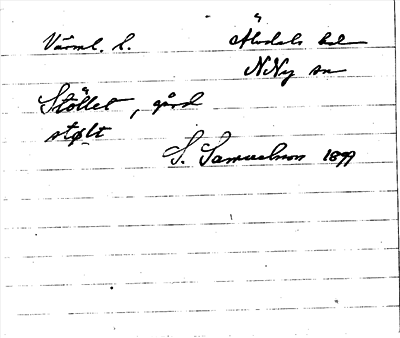 Värml. l. Älvdals hd
N Ny sn
Stöllet, gård
stølt
S. Samuelsson 1899